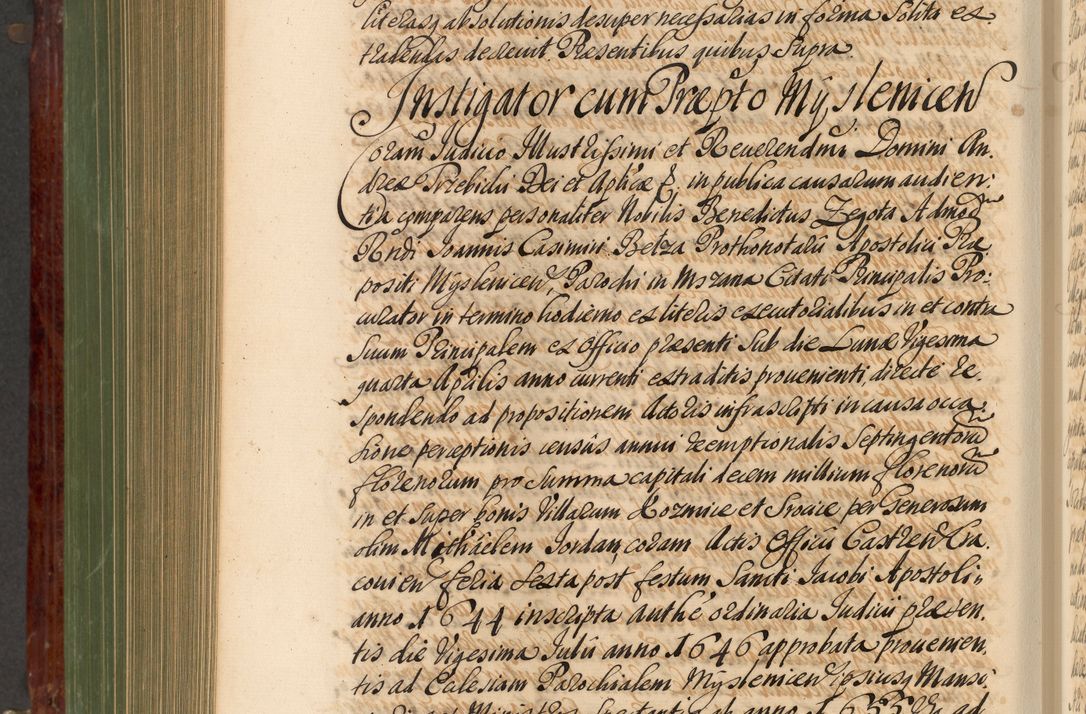 literasq absolutionis desuper necessarias in forma solita ex
tradendas decrevit. Praesentibus quibus supra.
Instigator cum Praepto Myslenicen
Coram Judicio Illustrissimi et Reverendmi Domini An.
dreae Trzebicki Dei et Aplicae &, in publica causarum audien:
tia comparens personaliter Nobilis Benedictus Zegota Admod
Rndi Joannis Casimiri Betza Prothonotarii Apostolici Prae
positi Myslenicen, Parochi in Mszana Citati Principalis Pro:
curator in termino hodierno ex literis executorialibus in et contra
Suum Principalem ex Officio praesenti sub die Lunae Vigesima
quarta Aprilis anno currenti extraditis provenienti, directe re.
spondendo ad propositionem Actoris infrascripti in causa occa
sione perceptionis census annui reemptionalis Septingentoru
florenorum pro summa capitali decem millium florenoru
in et super bonis Villarum Kozmice et Sroice per Generosum
olim Michaelem Jordan, coram Actis Officii Castren Cra.
covien feria sexta post festum Sancti Jacobi Apostoli
anno 1644 inscripta authe ordinaria Judicii praesen.
tis die Vigesima Julii anno 1646 approbata provenien.
tis ad Eclesiam Parochialem Myslenicen ipsiusq Mansi